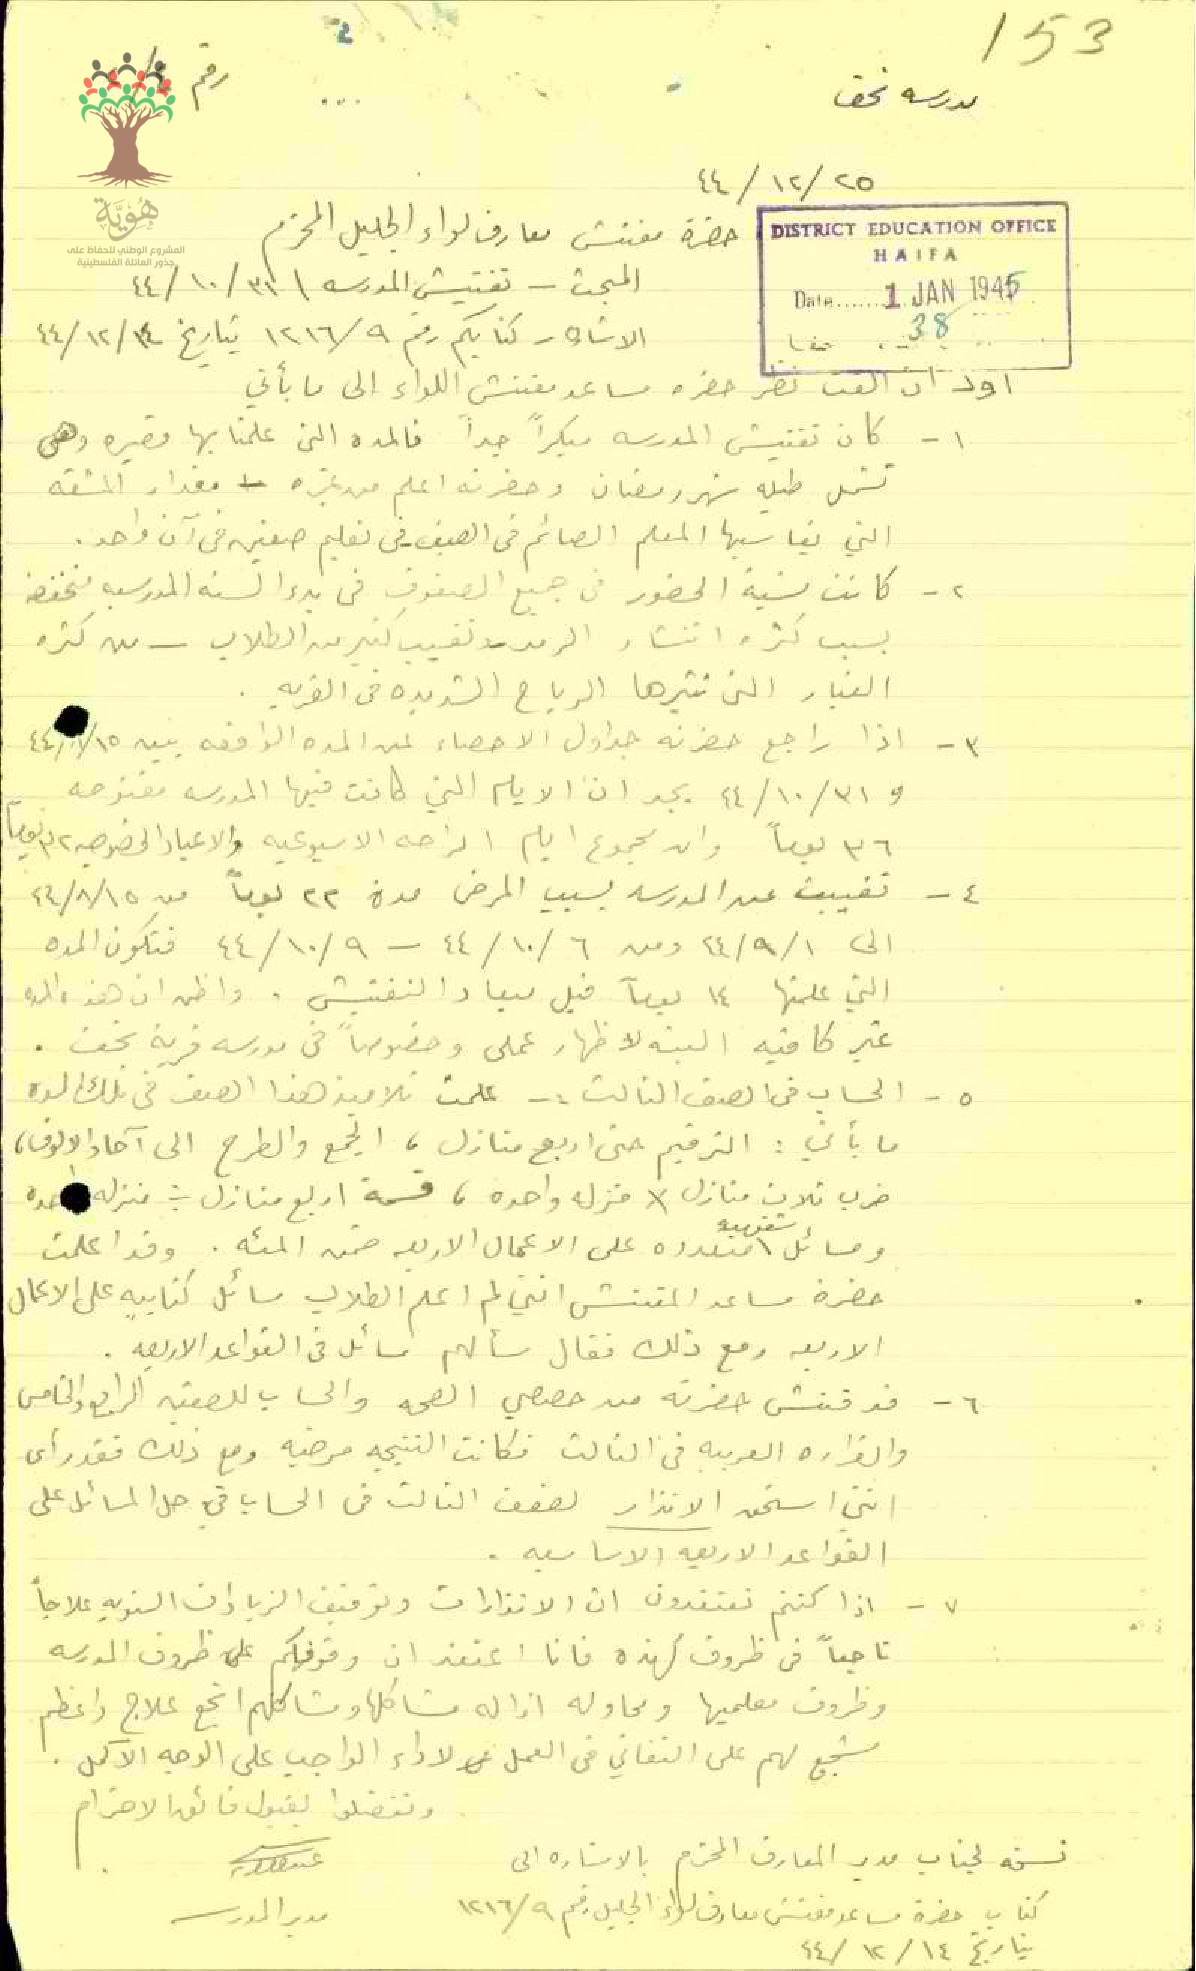 153
مدرسه نحف
رقم
٤٤/١٢/٢٥
هُوِيَّة
المشروع الوطني للحفاظ على
جذور العائلة الفلسطينية
DISTRICT EDUCATION OFFICE
HAIFA
Date....... 1 JAN 1945
38
حضرة مفتش معارف لواء الجليل المحترم
المبحث – تفتيش المدرسه ٤٤/١٠/٣١
الاشاره – كتابكم رقم ١٢١٦/٩ بتاريخ ٤٤/١٢/١٤
اود ان الفت نظر حضره مساعد مفتش اللواء الى ما يأتي
١ – كان تفتيش المدرسه مبكراً جداً فالمده التي علمنا بها قصيره وهي
تشمل طيلة شهر رمضان وحضرته اعلم من غيره مقدار المشقه
التي يقاسيها المعلم الصائم في الصيف في تعليم صفين في آن واحد .
٢ – كانت نسبة الحضور في جميع الصفوف في بدء السنه المدرسيه منخفضه
بسبب كثره انتشار الرمد وتغيب كثير من الطلاب – من كثره
الغبار التي تثيرها الرياح الشديده في القريه .
٣ – اذا راجع حضرته جداول الاحصاء عن المده الواقعه بين ١٥
و ٤٤/١٠/٣١ يجد ان الايام التي كانت فيها المدرسه مفتوحه
٣٦ يوماً وان مجموع ايام الراحه الاسبوعيه والاعياد الخصوصيه ٣٢ يوماً
٤ – تغيبت عن المدرسه بسبب المرض مدة ٢٢ يوماً من ٤٤/٨/١٥
الى ٤٤/٩/١ ومن ٤٤/١٠/٦ – ٤٤/١٠/٩ فتكون المده
التي علمتها ١٤ يوماً قبل ميعاد التفتيش . واظن ان هذه المده
غير كافيه البته لاظهار عملي وخصوصاً في مدرسه قرية نحف .
٥ – الحساب في الصف الثالث :– علمت تلاميذ هذا الصف في تلك المده
ما يأتي : الترقيم حتى اربع منازل ، الجمع والطرح الى آحاد الالوف ،
ضرب ثلاث منازل × منزله واحده ، قسمة اربع منازل ÷ منزله واحده
ومسائل شفهيه متعدده على الاعمال الاربعه ضمن المئه . وقد اعلمت
حضرة مساعد المفتش انني لم اعلم الطلاب مسائل كتابيه على الاعمال
الاربعه ومع ذلك فقال سألهم مسائل في القواعد الاربعه .
٦ – قد فتش حضرته من حصصي الصحه والحساب للصفين الرابع والخامس
والقراءه العربيه في الثالث فكانت النتيجه مرضيه ومع ذلك فقد رأى
انني استحق الانذار لضعف الثالث في الحساب في حل المسائل على
القواعد الاربعه الاساسيه .
٧ – اذا كنتم تعتقدون ان الانذارات وتوقيف الزيادات السنويه علاجاً
ناجعاً في ظروف كهذه فانا اعتقد ان وقوفكم على ظروف المدرسه
وظروف معلميها ومحاوله ازاله مشاكلها ومشاكلهم انجع علاج واعظم
مشجع لهم على التفاني في العمل لاداء الواجب على الوجه الاكمل .
وتفضلوا بقبول فائق الاحترام
نسخه لجناب مدير المعارف المحترم بالاشاره الى
كتاب حضرة مساعد مفتش معارف لواء الجليل رقم ١٢١٦/٩
مدير المدرسه
بتاريخ ٤٤/١٢/١٤